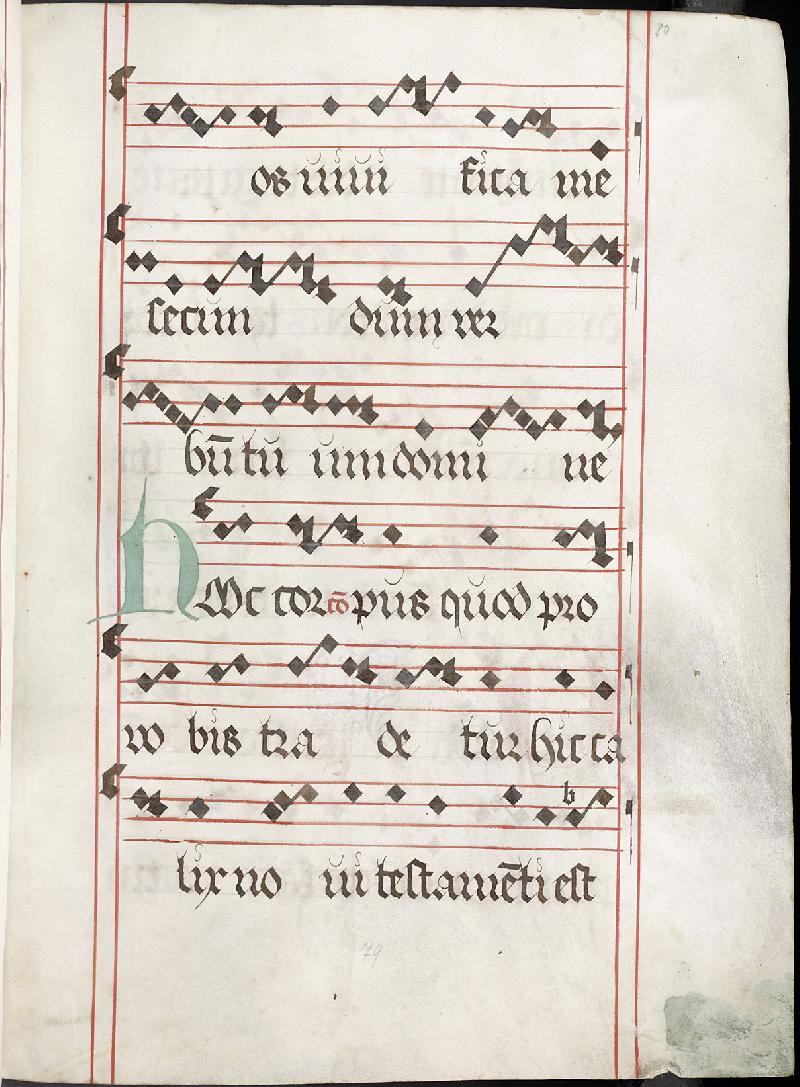 80
os uiui fica me
secun dum ver
bū tu um domi ne
Hoc cor cō pus quod pro
vo bis tra de tur hic ca
lix no ui testamēti est
79